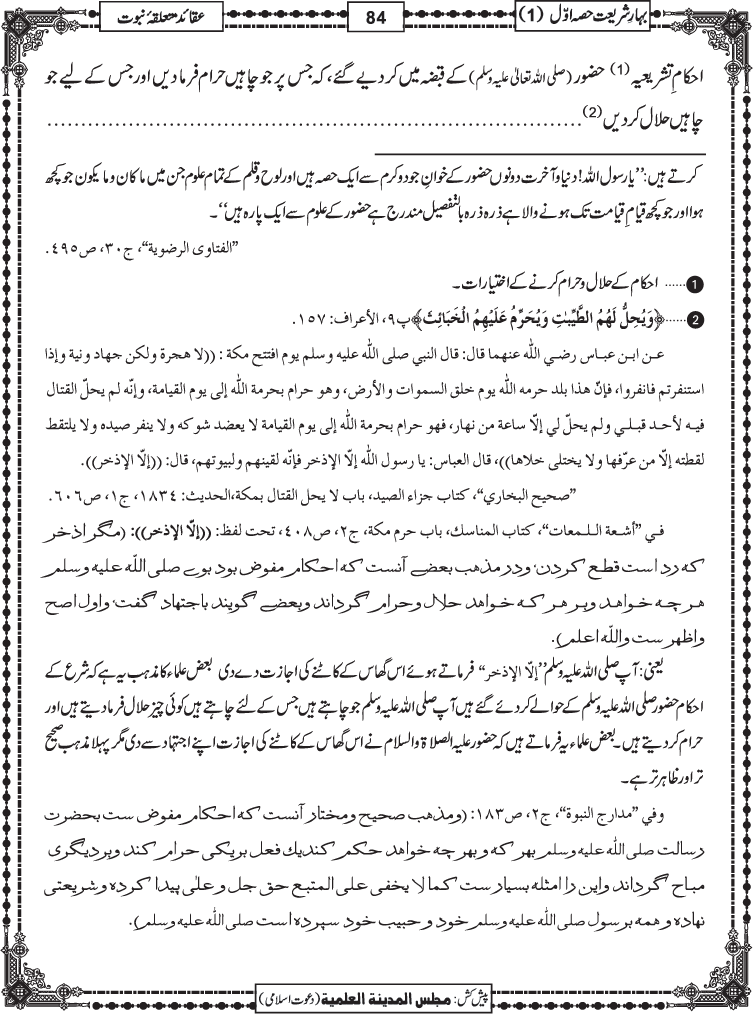 بہارِ شریعت حصہ اوّل (1)
84
عقائد متعلقۂ نبوت
احکامِ تشریعیہ (1) حضور (صلی اللہ تعالیٰ علیہ وسلم) کے قبضہ میں کر دیے گئے، کہ جس پر جو چاہیں حرام فرما دیں اور جس کے لیے جو
چاہیں حلال کر دیں (2) ....................................................................
کرتے ہیں: ’’یارسول اللہ! دنیا و آخرت دونوں حضور کے خوانِ جود و کرم سے ایک حصہ ہیں اور لوح و قلم کے تمام علوم جن میں ماکان وما یکون جو کچھ
ہوا اور جو کچھ قیامِ قیامت تک ہونے والا ہے ذرہ ذرہ بالتفصیل مندرج ہے حضور کے علوم سے ایک پارہ ہیں‘‘۔
”الفتاوی الرضویة“، ج۳۰، ص٤٩٥.
1 ...... احکام کے حلال و حرام کرنے کے اختیارات۔
2 ......﴿وَيُحِلُّ لَهُمُ الطَّيِّبٰتِ وَيُحَرِّمُ عَلَيْهِمُ الْخَبَائِثَ﴾ پ٩، الأعراف: ١٥٧.
عـن ابـن عبـاس رضـي اللّٰه عنهما قال: قال النبي صلى اللّٰه عليه وسلم يوم افتتح مكة : ((لا هجرة ولكن جهاد ونية وإذا
استنفرتم فانفروا، فإنّ هذا بلد حرمه اللّٰه يوم خلق السموات والأرض، وهو حرام بحرمة اللّٰه إلى يوم القيامة، وإنّه لم يحلّ القتال
فيـه لأحـد قبلـي ولم يحلّ لي إلّا ساعة من نهار، فهو حرام بحرمة اللّٰه إلى يوم القيامة لا يعضد شوكه ولا ينفر صيده ولا يلتقط
لقطته إلّا من عرّفها ولا يختلى خلاها))، قال العباس: يا رسول اللّٰه إلّا الإذخر فإنّه لقينهم ولبيوتهم، قال: ((إلّا الإذخر)).
”صحيح البخاري“، كتاب جزاء الصيد، باب لا يحل القتال بمكة،الحديث: ١٨٣٤، ج١، ص٦٠٦.
فـي ”أشـعة اللـمعات“، كتاب المناسك، باب حرم مكة، ج٢، ص٤٠٨، تحت لفظ: ((إلّا الإذخر)): (مگر اذخر
که رد است قطع کردن ودر مذهب بعضے آنست که احکام مفوض بود بوے صلى اللّٰه عليه وسلم
هر چه خواهد وبر هر که خواهد حلال وحرام گرداند وبعضے گویند باجتهاد گفت واول اصح
واظهر ست واللّٰه اعلم).
یعنی: آپ صلی اللہ علیہ وسلم ’’إلّا الإذخر‘‘ فرماتے ہوئے اس گھاس کے کاٹنے کی اجازت دے دی بعض علماء کا مذہب یہ ہے کہ شرع کے
احکام حضور صلی اللہ علیہ وسلم کے حوالے کر دئے گئے ہیں آپ صلی اللہ علیہ وسلم جو چاہتے ہیں جس کے لئے چاہتے ہیں کوئی چیز حلال فرما دیتے ہیں اور
حرام کر دیتے ہیں۔ بعض علماء یہ فرماتے ہیں کہ حضور علیہ الصلاۃ والسلام نے اس گھاس کے کاٹنے کی اجازت اپنے اجتہاد سے دی مگر پہلا مذہب صحیح
تر اور ظاہر تر ہے۔
وفي ”مدارج النبوة“، ج٢، ص١٨٣: (ومذهب صحیح ومختار آنست که احکام مفوض ست بحضرت
رسالت صلى اللّٰه عليه وسلم بهر که و بهر چه خواهد حکم کند یك فعل بریکی حرام کند وبر دیگری
مباح گرداند واین را امثله بسیار ست کما لا يخفى على المتبع حق جل وعلٰى پیدا کرده وشریعتی
نهاده وهمه بر سول صلى اللّٰه عليه وسلم خود و حبیب خود سپرده است صلى اللّٰه عليه وسلم).
پیش کش: مجلس المدينة العلمية (دعوت اسلامی)